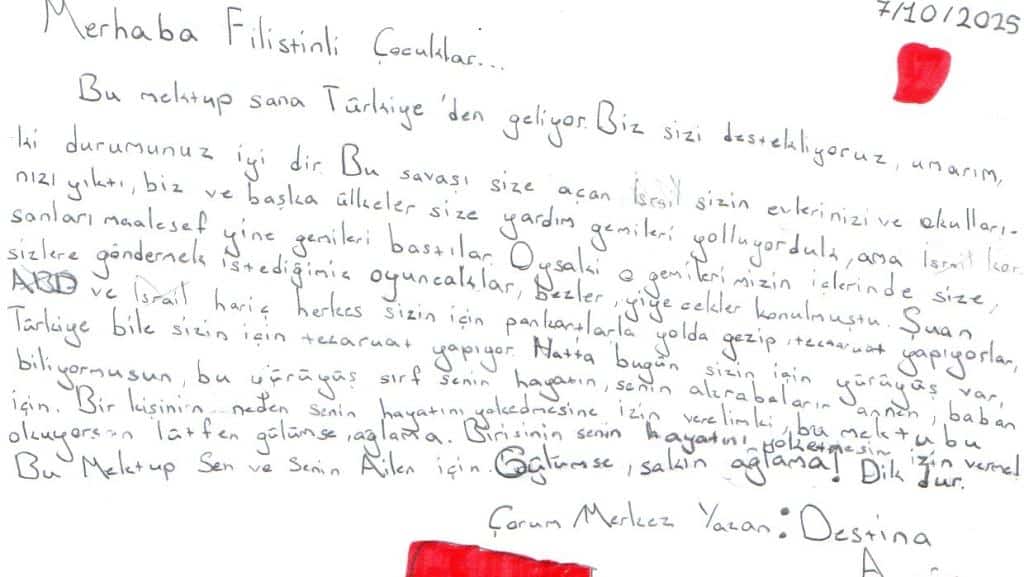 7/10/2025
Merhaba Filistinli Çocuklar...
Bu mektup sana Türkiye'den geliyor. Biz sizi destekliyoruz, umarım,
ki durumunuz iyi dir. Bu savaşı size açan İsrail sizin evlerinizi ve okulları-
nızı yıktı, biz ve başka ülkeler size yardım gemileri yolluyorduk, ama İsrail kor-
sanları maalesef yine gemileri bastılar. Oysaki o gemilerimizin içlerinde size,
sizlere göndernek istediğimiz oyuncaklar, bezler, yiyecekler konulmuştu. Şuan
ABD ve İsrail hariç herkes sizin için pankartlarla yolda gezip, tezaruat yapıyorlar,
Türkiye bile sizin için tezaruat yapıyor. Hatta bugün sizin için yürüyüş var,
biliyormusun, bu yürüyüş sırf senin hayatın, senin akrabaların annen, baban
için. Bir kişinin neden senin hayatını yokedmesine izin verelimki, bu mektubu
okuyorsan lütfen gülümse, ağlama. Birisinin senin hayatını yoketmesin izin verme!
Bu Mektup Sen ve Senin Ailen için. Gülümse, sakın ağlama! Dik dur.
Çorum Merkez Yazan: Destina